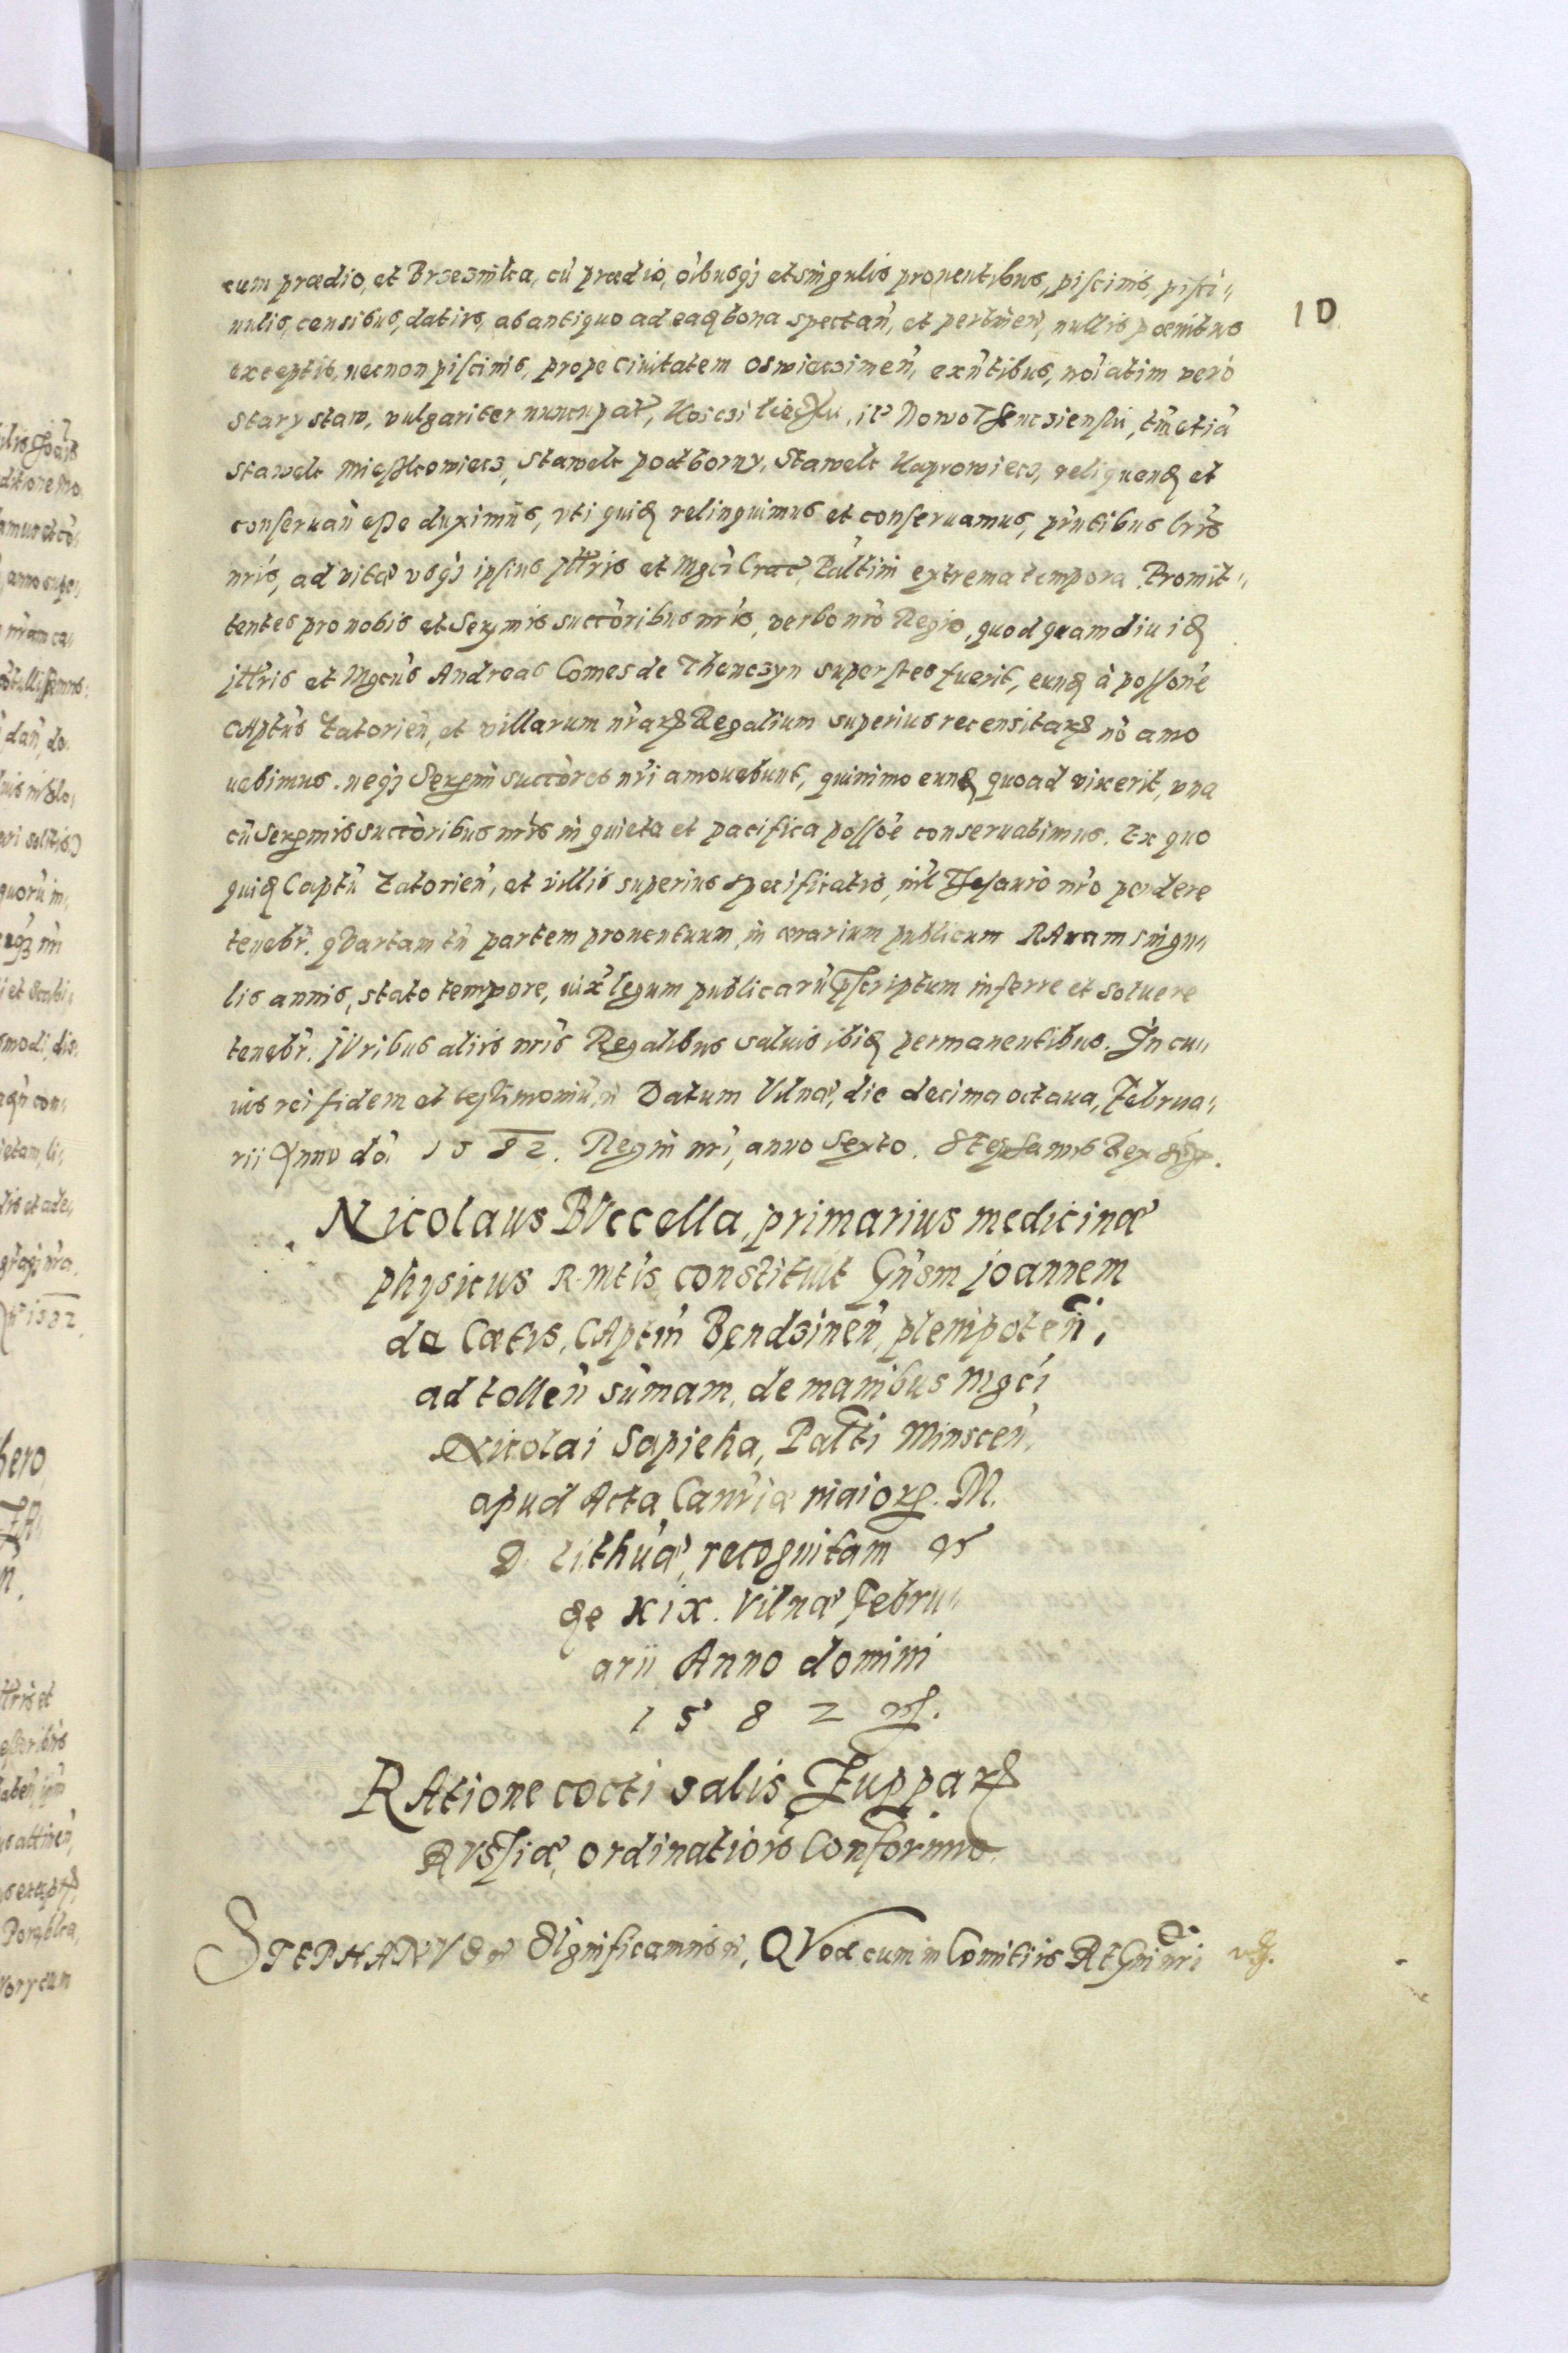 10
cum prædio, et Brzezinka, cū prædio, oībusq; et singulis prouentibus, piscinis, pisci„
nulis, censibus, datiis, ab antiquo ad eaq bona spectan̄, et pertinen̄, nullis pænitus
exceptis, necnon piscinis, prope Ciuitatem Oswieczimen̄, exn̄tibus, noīatim vero
Stary staw, vulgariter nuncupat, Nowo Thenczienski, etiā
Stawek Mieskowiecz, Stawek podborny, Stawek Kaprowiecz, relinquen et
conseruan̄ esse duximus, vti quiď relinquimus et conseruamus, prn̄tibus lrīs
nrīs, ad vitæ vsq; ipsius Illris et Mgci Crac̄ Paltini extrema tempora. Promit„
tentes pro nobis et Serẽmis succoribus nrīs, verbo nrō Regio, quod quamdiu
Illris et Mgcūs Andreas Comes de Thenczyn superstes fuerit, eunď à possone
CAptūs Zatorien̄, et villarum nrarꝝ Regalium superius recensitarꝝ nō amo
uebimus. neq; Serẽmi succores nrī amouebunt, quinimo eunď quoad vixerit, vna
cū Serẽmis succoribus nrīs in quieta et pacifica possoē conseruabimus. Ex quo
quiď Captū Zatorien̄, et villis superius specificatis, nil Thesauro nrō pendere
tenebr̄. qVartam tn̄ partem prouentuum, in ærarium publicum RAuam singu„
lis annis, stato tempore, iux̄ legum publicarū pscriptum inferre et soluere
tenebr̄. JVribus aliis nrīs Regalibus saluis ibiď permanentibus. In cu„
ius rei fidem et testimoniū, Datum Vilnæ, die decima octaua, Februa„
rii Anno do 1582. Regni nrī, anno Sexto. Stephanus Rex
Nicolaus BVccella, primarius medicinæ
physicus R. Mtis constituit Gn̄sm Joannem
de Cætis, CAptm̄ Bendzinen̄, plenipoten̄,
ad tollen̄ sūmam, de manibus Mgci
Nicolai Sapieha, Palti Minscen̄,
apud Acta Canrīæ maiorꝝ. M.
D. Lithūæ, recognitam
xix. Vilnæ Febru„
arii Anno domini
1582
RAtione cocti salis Zupparꝝ
RVssiæ, ordinatiois Confirmo.
STEPHANVS SIgnificamus, QVod cum in Comitiis REgni nrī